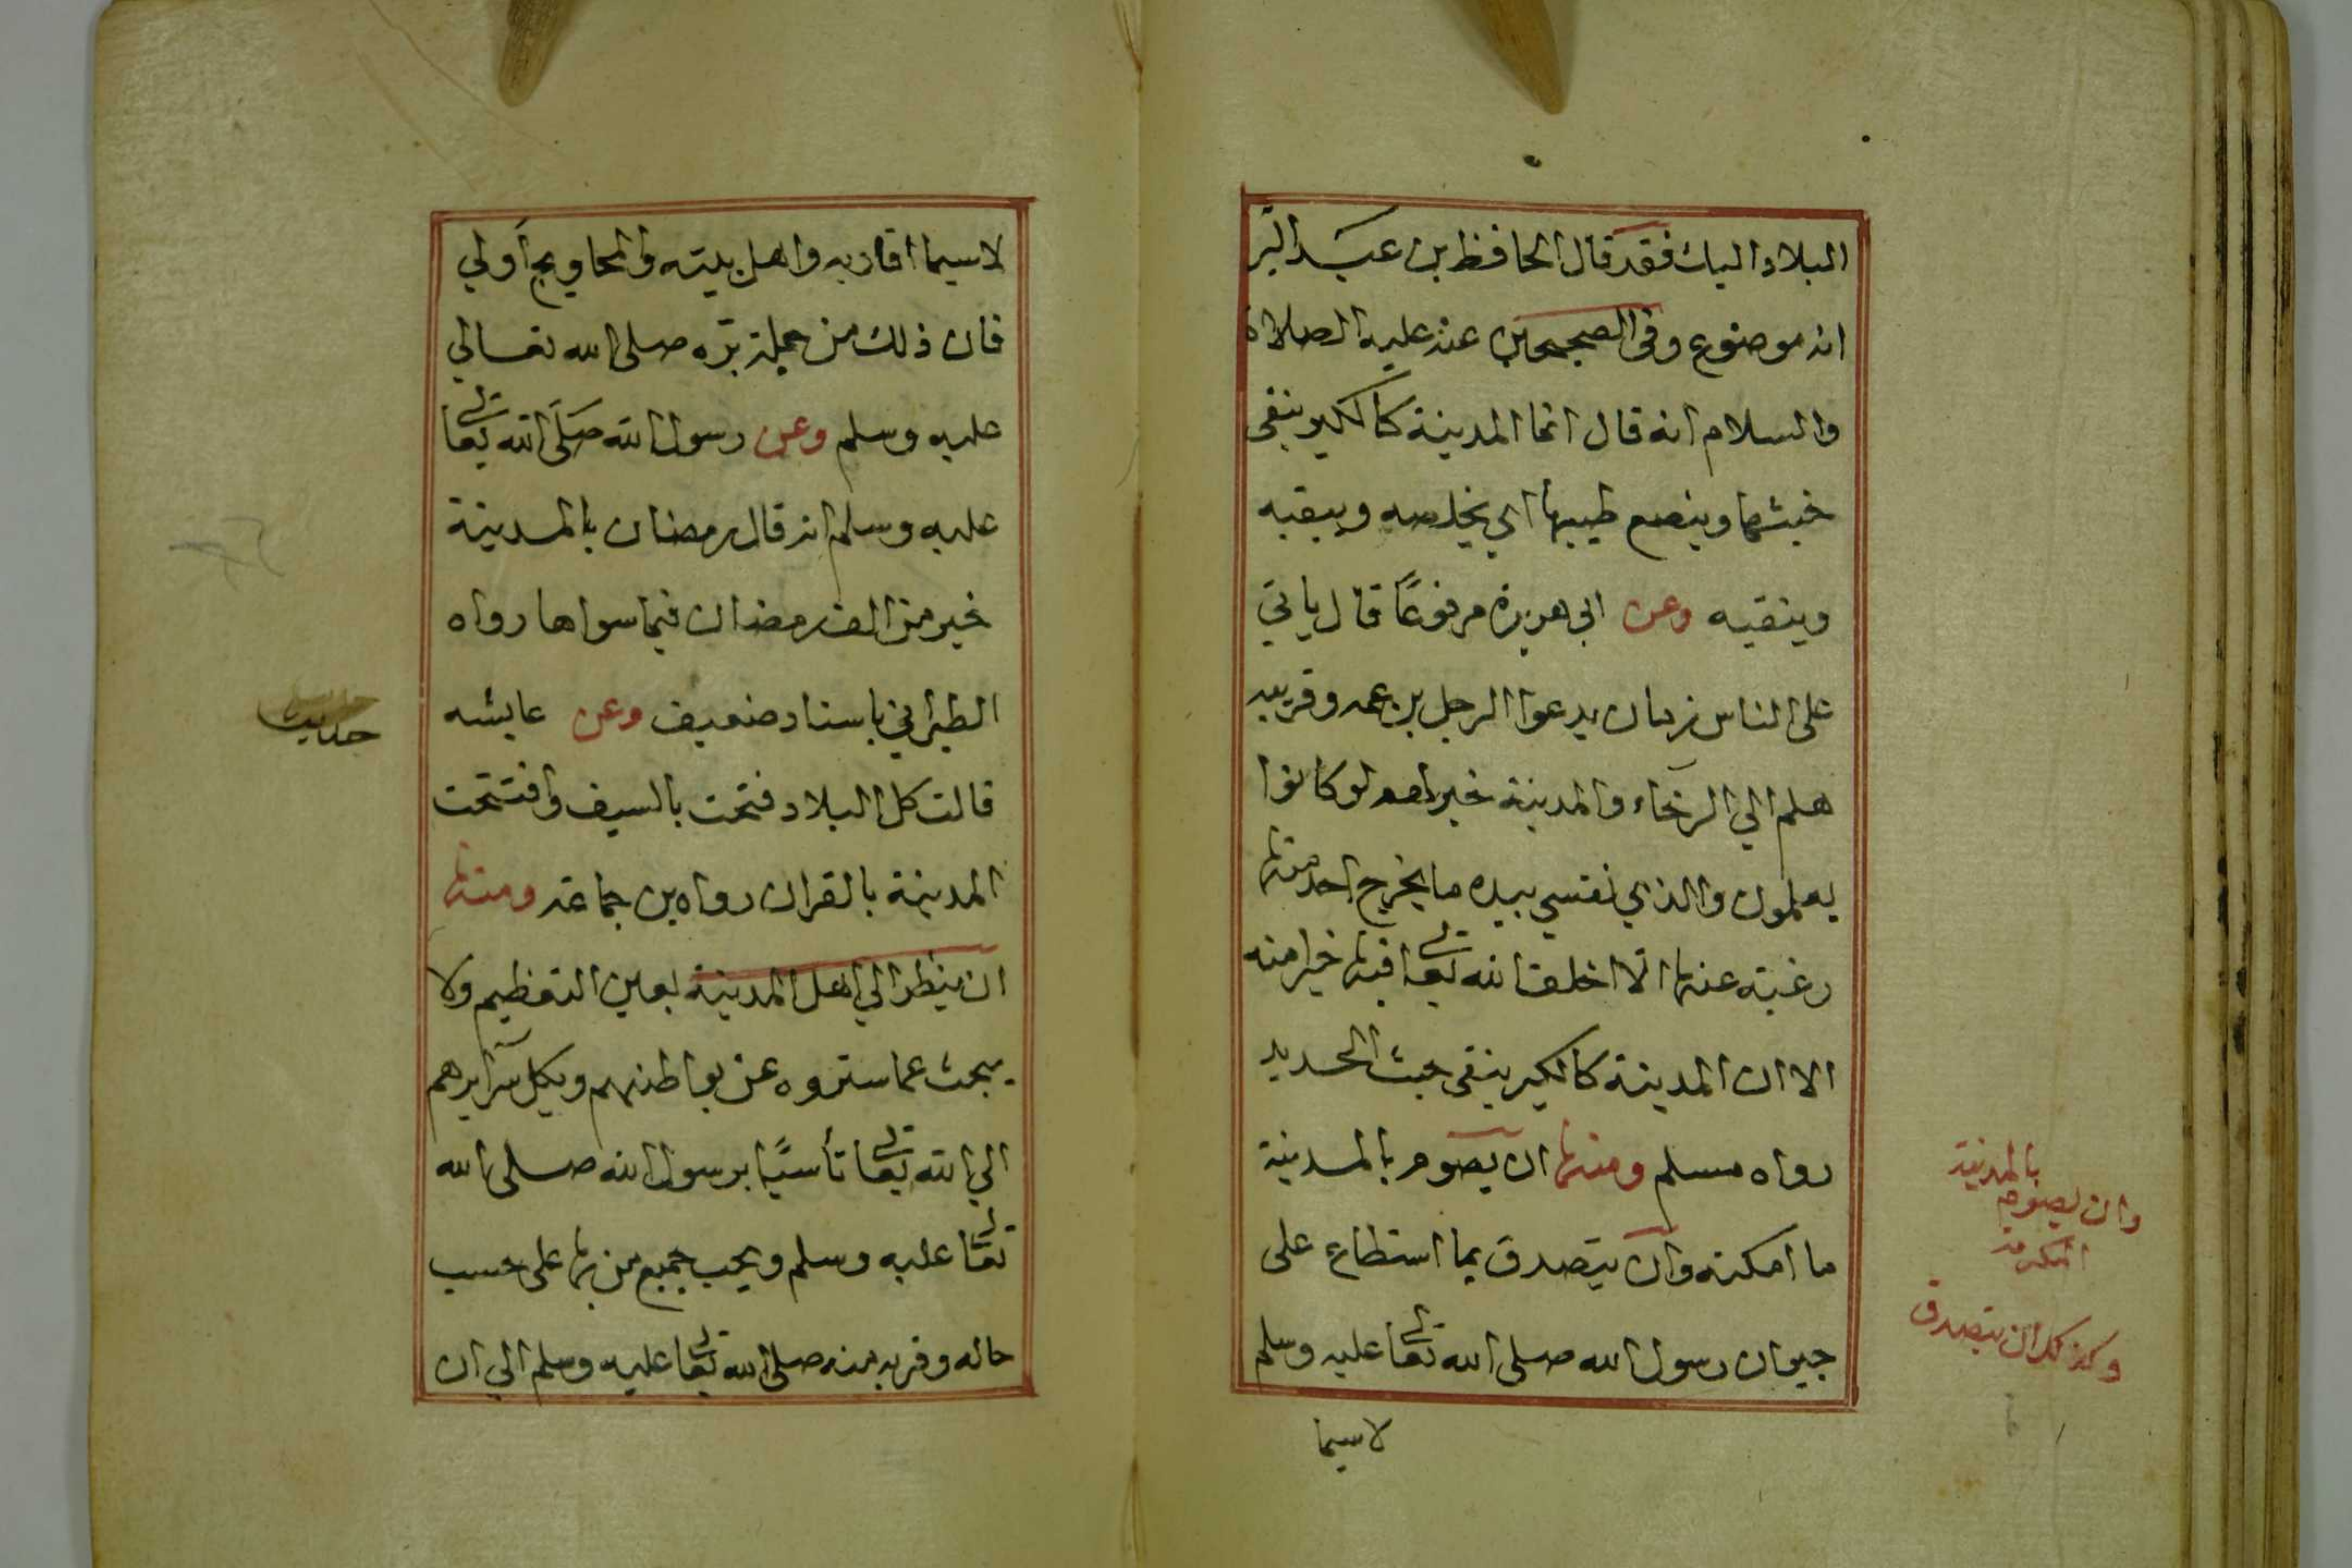 البلاد اليك فقد قال الحافظ بن عبد البر
انه موضوع وفي الصحيحين عنه عليه الصلاة
والسلام انه قال انما المدينة كالكير ينفى
خبثها وينصع طيبها اي يخلصه ويبقيه
وينقيه وعن ابي هريرة مرفوعًا قال ياتي
على الناس زمان يدعوا الرجل بن عمه وقريبه
هلم الي الرخاء والمدينة خير لهم لو كانوا
يعلمون والذي نفسي بيده ما يخرج احد منها
رغبته عنها الا اخلف الله تعالى فيها خيرا منه
الا ان المدينة كالكير ينفى خبث الحديد
رواه مسلم ومنها ان يصوم بالمدينة
ما امكنه وان يتصدق بما استطاع على
جيران رسول الله صلى الله تعالى عليه وسلم
لاسيما
بالمدينة
وان يصوم
المكرمة
وكذلك ان يتصدق
لاسيما اقاربه واهل بيته والمحاويج اولي
فان ذلك من جملة بره صلى الله تعالي
عليه وسلم وعن رسول الله صَلَى الله تعالى
عليه وسلم انه قال رمضان بالمدينة
خير من الف رمضان فيما سواها رواه
الطبراني باسناد ضعيف وعن عايشه
قالت كل البلاد فتحت بالسيف وافتتحت
المدينة بالقران رواه بن جماعة ومنها
ان ينظر الي اهل المدينة بعين التعظيم ولا
يبحث عما ستروه عن بواطنهم ويكل سرايرهم
الي الله تعالى تأسيًا برسول الله صلى الله
تعالى عليه وسلم ويحب جميع من بها على حسب
حاله وقربه منه صلى الله تعالى عليه وسلم الي ان
حديث